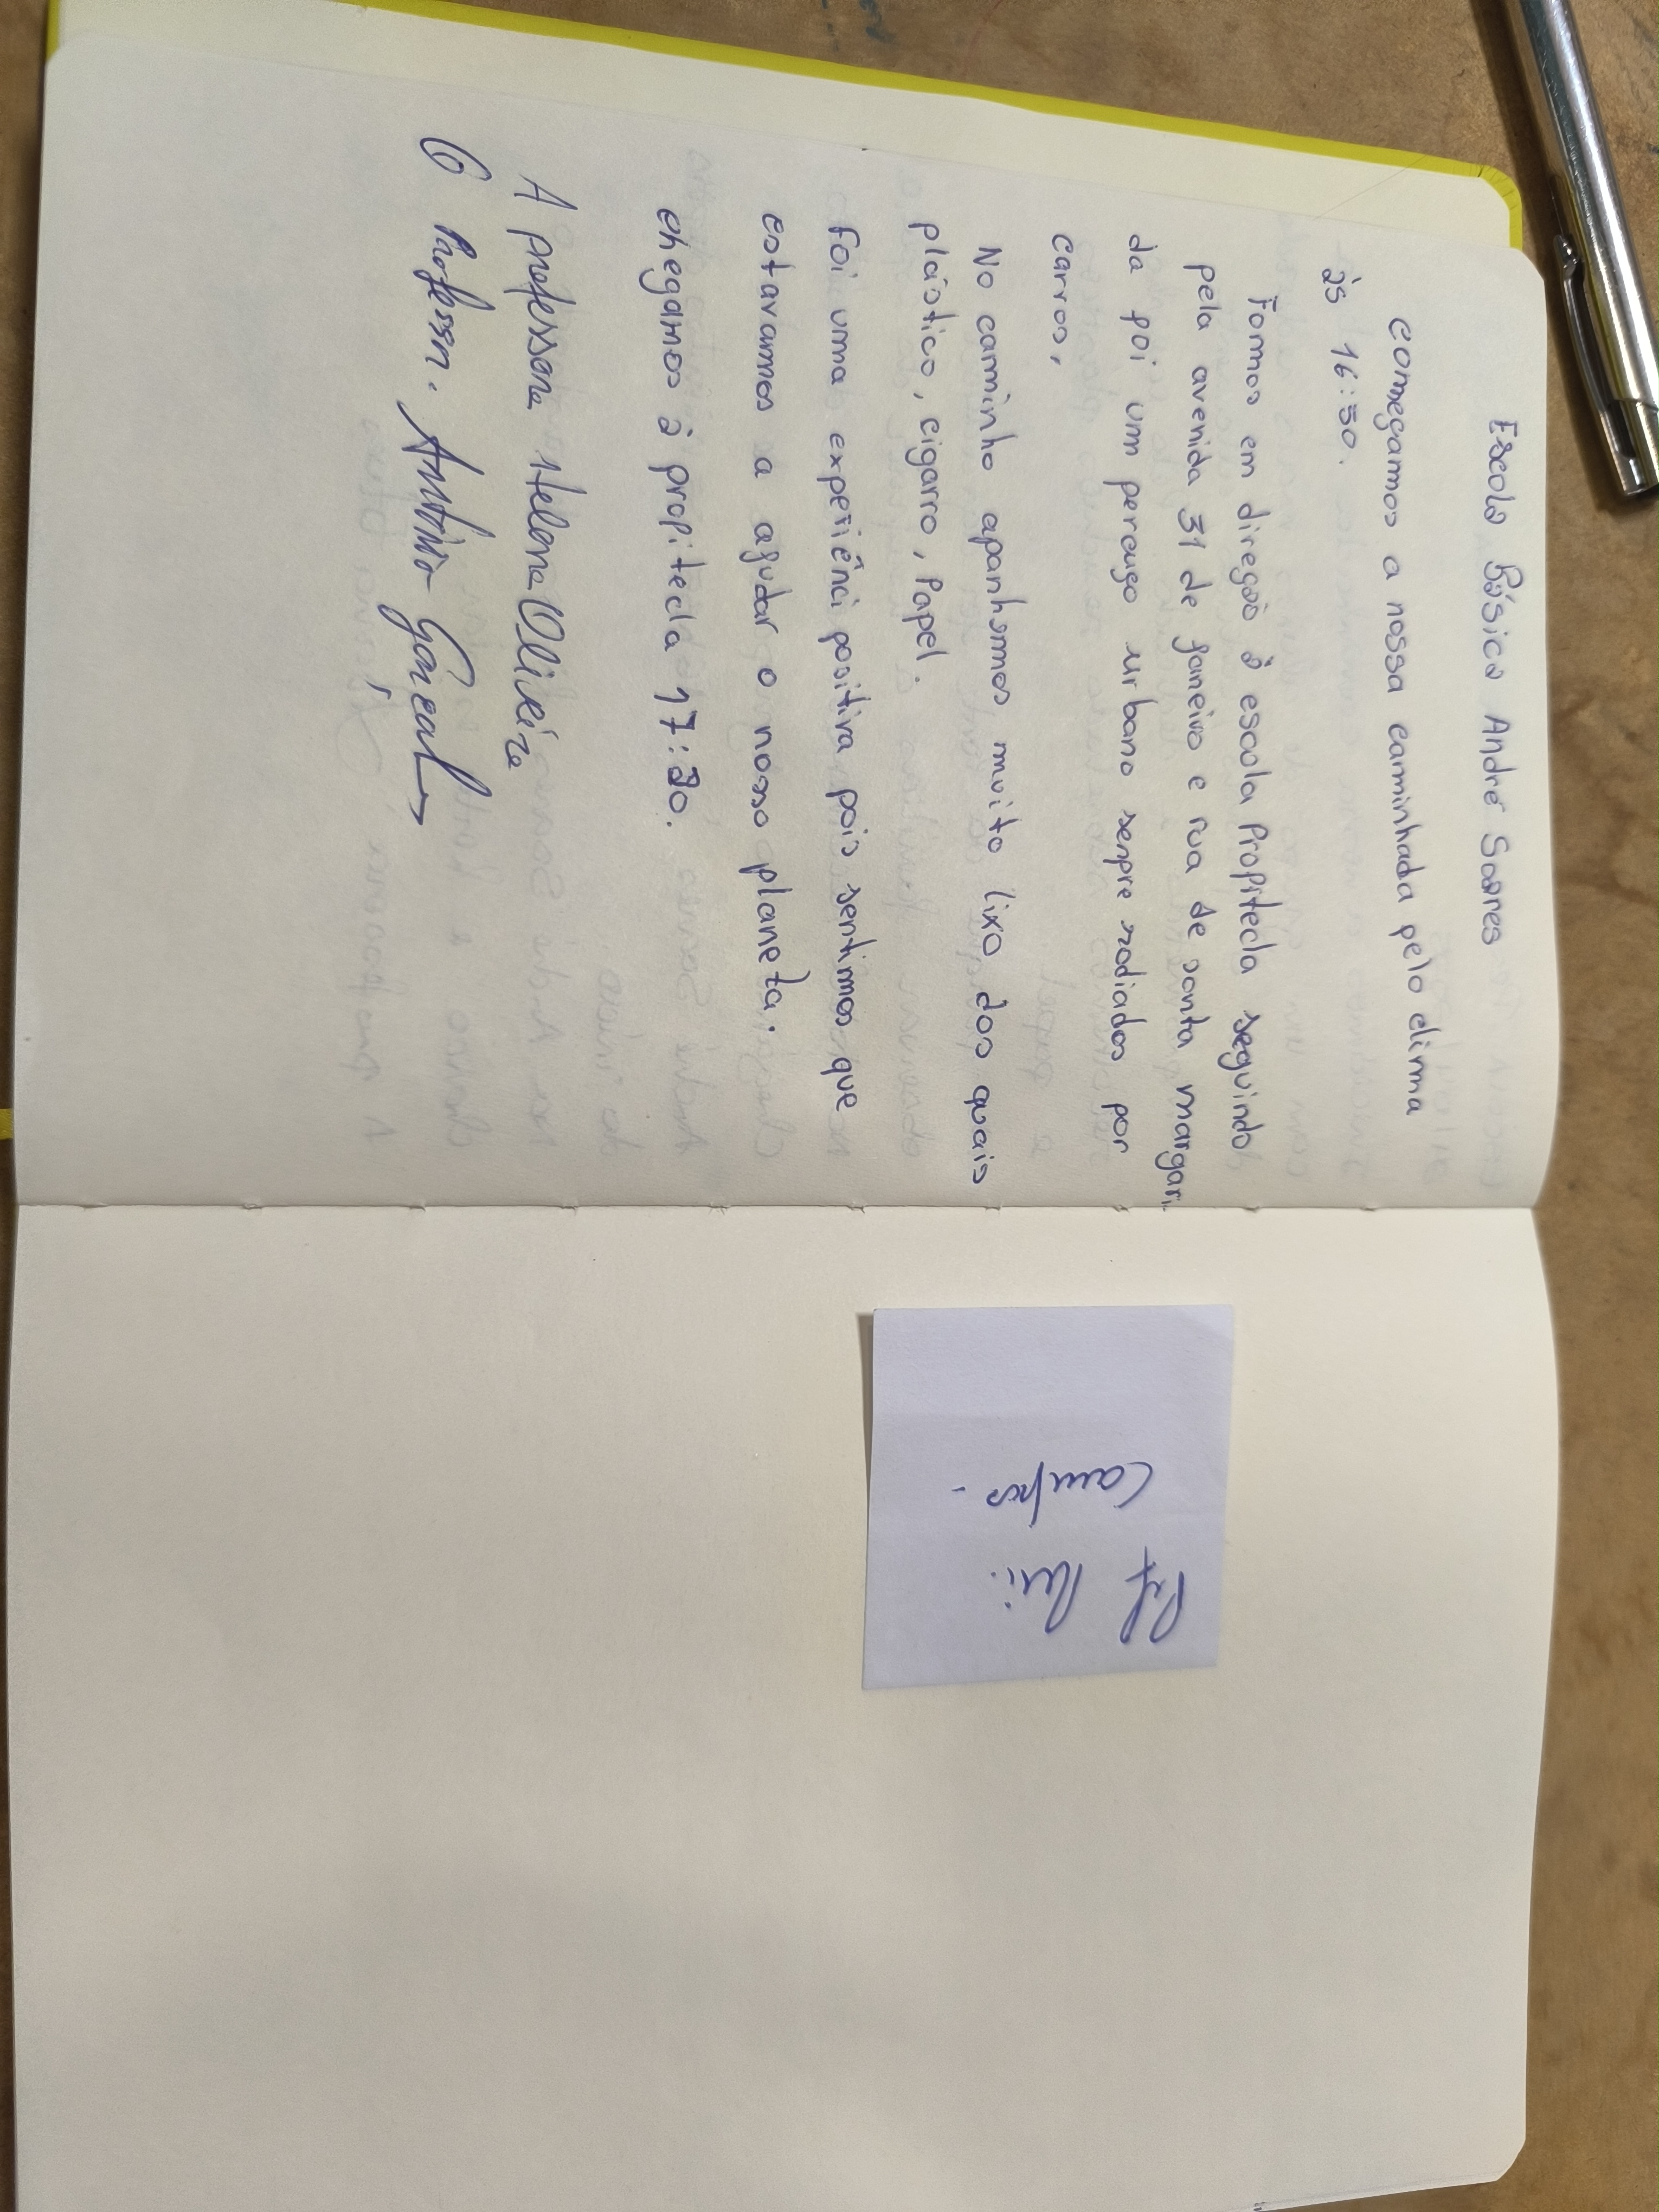 Escola Básica André Soares
começamos a nossa caminhada pelo clima
às 16:30.
Formos em direção à escola Propitecla seguindo
pela avenida 31 de janeiro e rua de santa margari
da foi um percuso urbano senpre rodiados por
carros,
No caminho apanhamos muito lixo dos quais
plástico, cigarro, Papel.
foi uma expeiênci positiva pois sentimos que
estavamos a ajudar o nosso planeta.
chegamos à propitecla 17:30.
A professora Helena Oliveira
O Professor. António
Prof Rui.
Campos.